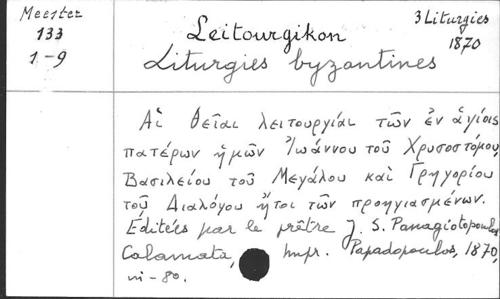 Meester
133
1-9
Leitourgikon
3 Liturgies
1870
Liturgies byzantines
Αἱ θεῖαι λειτουργίαι τῶν ἐν ἁγίοις
πατέρων ἡμῶν Ἰωάννου τοῦ Χρυσοστόμου,
Βασιλείου τοῦ Μεγάλου καὶ Γρηγορίου
τοῦ Διαλόγου ἤτοι τῶν προηγιασμένων.
Éditées par le prêtre J. S. Panagiotopoulos
Calamata, Impr. Papadopoulos, 1870,
in-80.